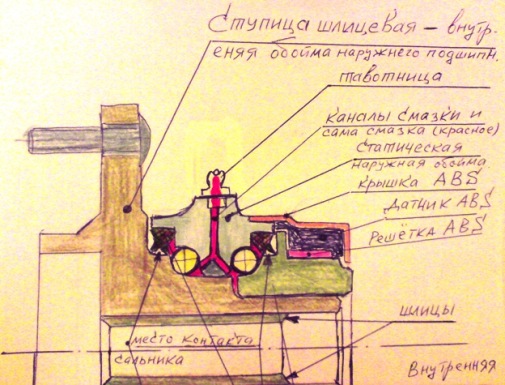 Ступица шлицевая – внутр.
еняя обойма наружнего подшипн.
тавотница
каналы смазки и
сама смазка (красное)
статическая
наружная обойма
крышка ABS
Датчик ABS
Решётка ABS
шлицы
место контакта
сальника
Внутренняя